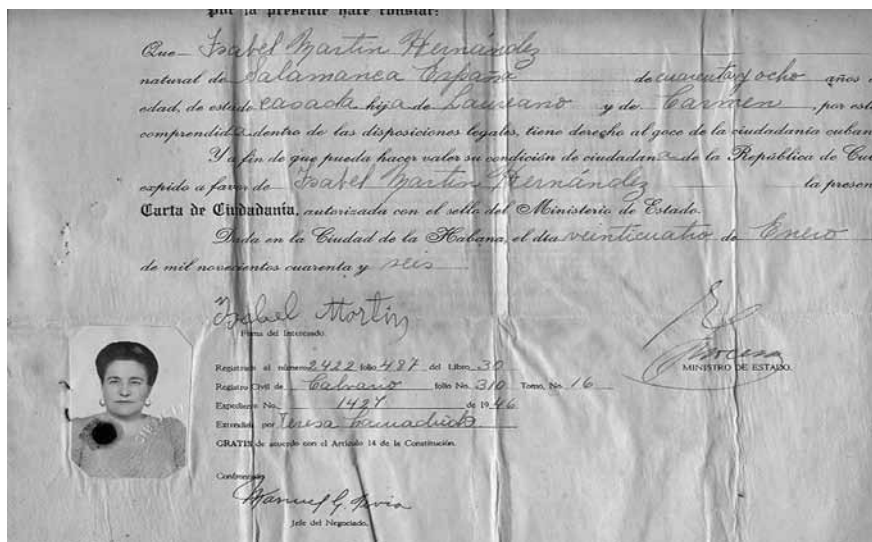 por la presente hace constar:
Que Isabel Martin Hernández
natural de Salamanca España de cuarenta y ocho años
edad, de estado casada hija de Laureano y de Carmen, por
comprendida dentro de las disposiciones legales, tiene derecho al goce de la ciudadanía
Y a fin de que pueda hacer valer su condición de ciudadana de la República de
expido a favor de Isabel Martin Hernández la
Carta de Ciudadanía, autorizada con el sello del Ministerio de Estado.
Dada en la Ciudad de la Habana, el día veinticuatro de Enero
de mil novecientos cuarenta y seis
Isabel Martin
Firma del Interesado.
Registrado al número 2422 folio 487 del Libro 30
MINISTRO DE ESTADO.
Registro Civil de folio No. 310 Tomo, No. 16
Expediente No. 1427 de 1946
Extendida por Teresa
GRATIS de acuerdo con el Artículo 14 de la Constitución.
Confrontado
Manuel G.
Jefe del Negociado.